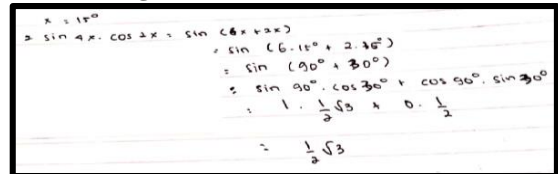 x = 15°
2 sin 4x . cos 2x = sin (6x + 2x)
= sin (6.15° + 2.15°)
= sin (90° + 30°)
= sin 90° . cos 30° + cos 90° . sin 30°
= 1 . 1/2 √3 + 0 . 1/2
= 1/2 √3